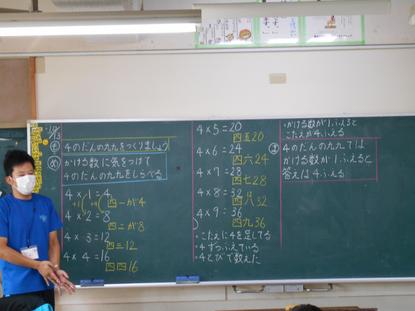 4のだんの九九をつくりましょう
かける数に気をつけて
4のだんの九九をしらべる
4×1=4
四一が4
4×2=8
四二が8
4×3=12
四三12
4×4=16
四四16
4×5=20
四五20
4×6=24
四六24
4×7=28
四七28
4×8=32
四八32
4×9=36
四九36
・こたえに4を足してる
・4ずつふえている
・4とびで数えた
・かける数が1ふえると
こたえが4ふえる
4のだんの九九では
かける数が1ふえると
答えは4ふえる